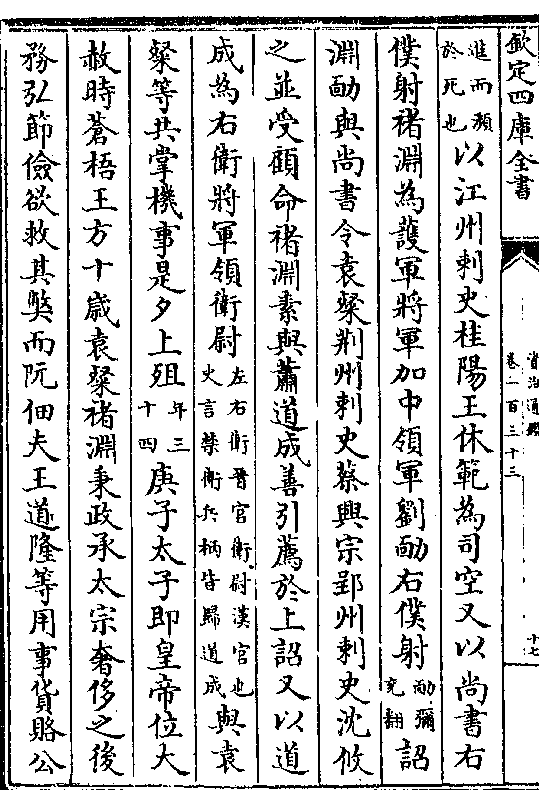 欽定四庫全書
資治通鑑
卷一百三十三
十七
進而瀕
於死也以江州刺史桂陽王休範為司空又以尚書右
僕射褚淵為䕶軍將軍加中領軍劉勔右僕射勔彌
兖翻詔
淵勔與尚書令袁粲荆州刺史蔡興宗郢州刺史沈攸
之並受顧命褚淵素與蕭道成善引薦於上詔又以道
成為右衛將軍領衛尉左右衛晉官衛尉漢官也
史言禁衛兵柄皆歸道成與袁
粲等共掌機事是夕上殂年三
十四庚子太子即皇帝位大
赦時蒼梧王方十歲袁粲褚淵秉政承太宗奢侈之後
務弘節儉欲救其弊而阮佃夫王道隆等用事貨賂公